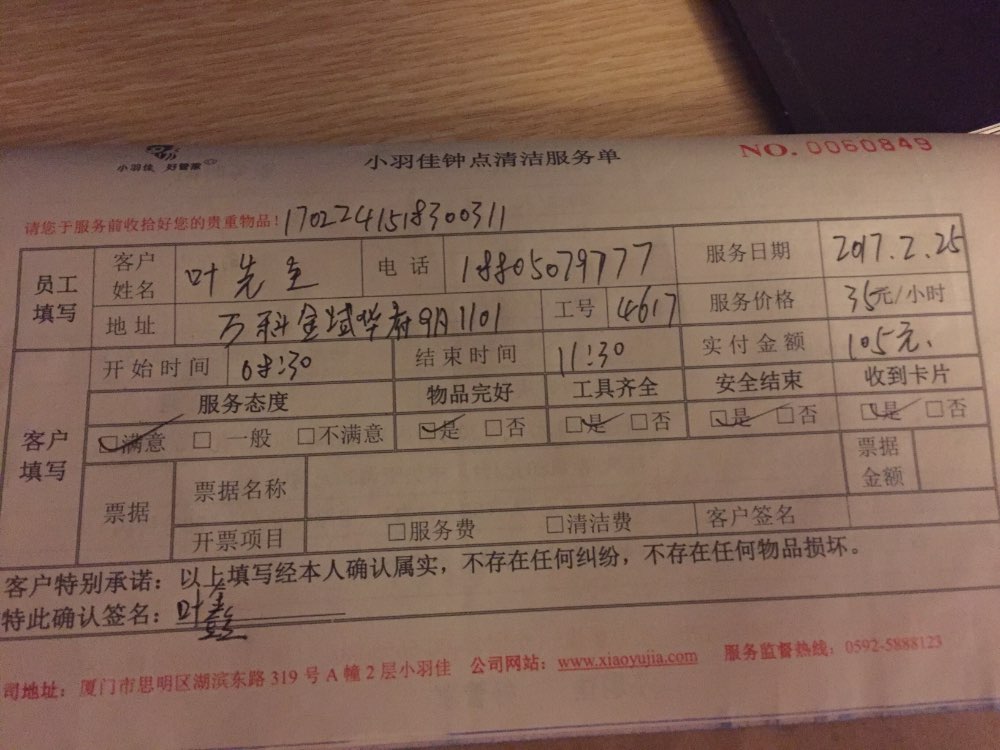 小羽佳 好管家
小羽佳钟点清洁服务单
NO. 0060849
请您于服务前收拾好您的贵重物品！1702241518300311
员工填写 客户姓名 叶先生 电话 18805079777 服务日期 2017.2.25
地址 万科金域华府9月1101 工号 4617 服务价格 35元/小时
客户填写 开始时间 08:30 结束时间 11:30 实付金额 105元.
服务态度 物品完好 工具齐全 安全结束 收到卡片
☑满意 □一般 □不满意 ☑是 □否 ☑是 □否 ☑是 □否 ☑是 □否
票据 票据名称 票据金额
开票项目 □服务费 □清洁费 客户签名
客户特别承诺：以上填写经本人确认属实，不存在任何纠纷，不存在任何物品损坏。
特此确认签名：叶
司地址：厦门市思明区湖滨东路319号A幢2层小羽佳 公司网站：www.xiaoyujia.com 服务监督热线：0592-5888123